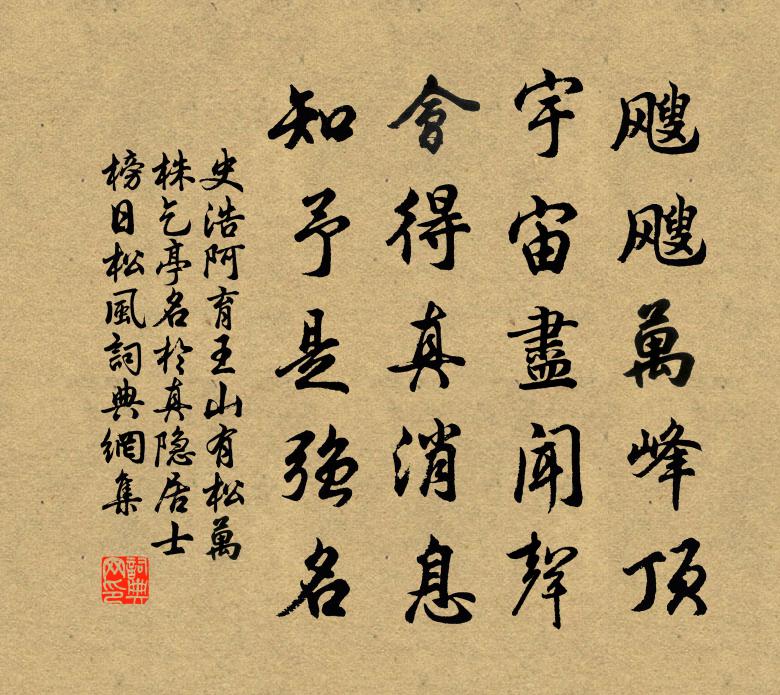 颼颼萬峰頂
宇宙盡聞聲
會得真消息
知予是強名
史浩阿育王山有松萬
株乞亭名於真隱居士
榜日松風詞典網集
詞典
网印